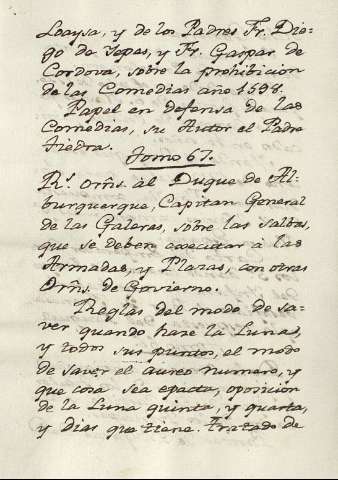 Loaysa, y de los Padres Fr. Die-
go de Yepes, y Fr. Gaspar de
Cordova, sobre la prohibicion
de las Comedias año 1598.
Papel en defensa de las
Comedias, su Autor el Padre
Fiedra.
Tomo 67.
Rs. Orñs. àl Duque de Al-
burquerque, Capitan General
de las Galeras, sobre las salbas,
que se deben executar à las
Armadas, y Plazas, con otras
Orñs. de Govierno.
Reglas del modo de sa-
ver quando haze la Luna,
y todos sus puntos, el modo
de saver el aureo numero, y
que cosa sea epacta, oposicion
de la Luna quinta, y quarta,
y dias que tiene. Tratado de